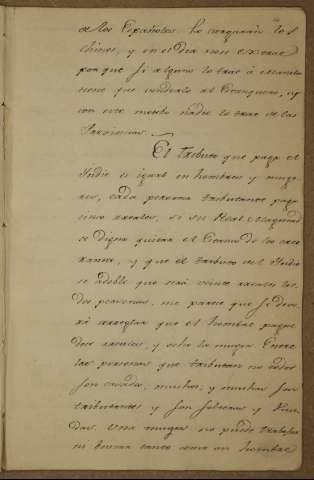 a los Españoles lo compraran los
Chinos, y en el dia nos escasea
por que si alguno lo trae à Manila
tiene que venderlo al Estanquero, y
con este motivo nadie lo trae de las
Provincias.
El tributo que paga el
Indio es igual en hombres y muge-
res, cada persona tributante paga
cinco rreales, si su Real Magestad
se digna quitar el Estanco de los
y que el tributo del Indio
se adoble que será veinte rreales las
dos personas, me parece que se deve-
rá arreglar que el hombre pague
doce rreales, y ocho la muger. Entre
las personas que tributan no todos
son casados, muchos, y muchas son
tributantes y son solteras y Viu-
das. Una muger no puede trabajar
ni buscar tanto como un hombre